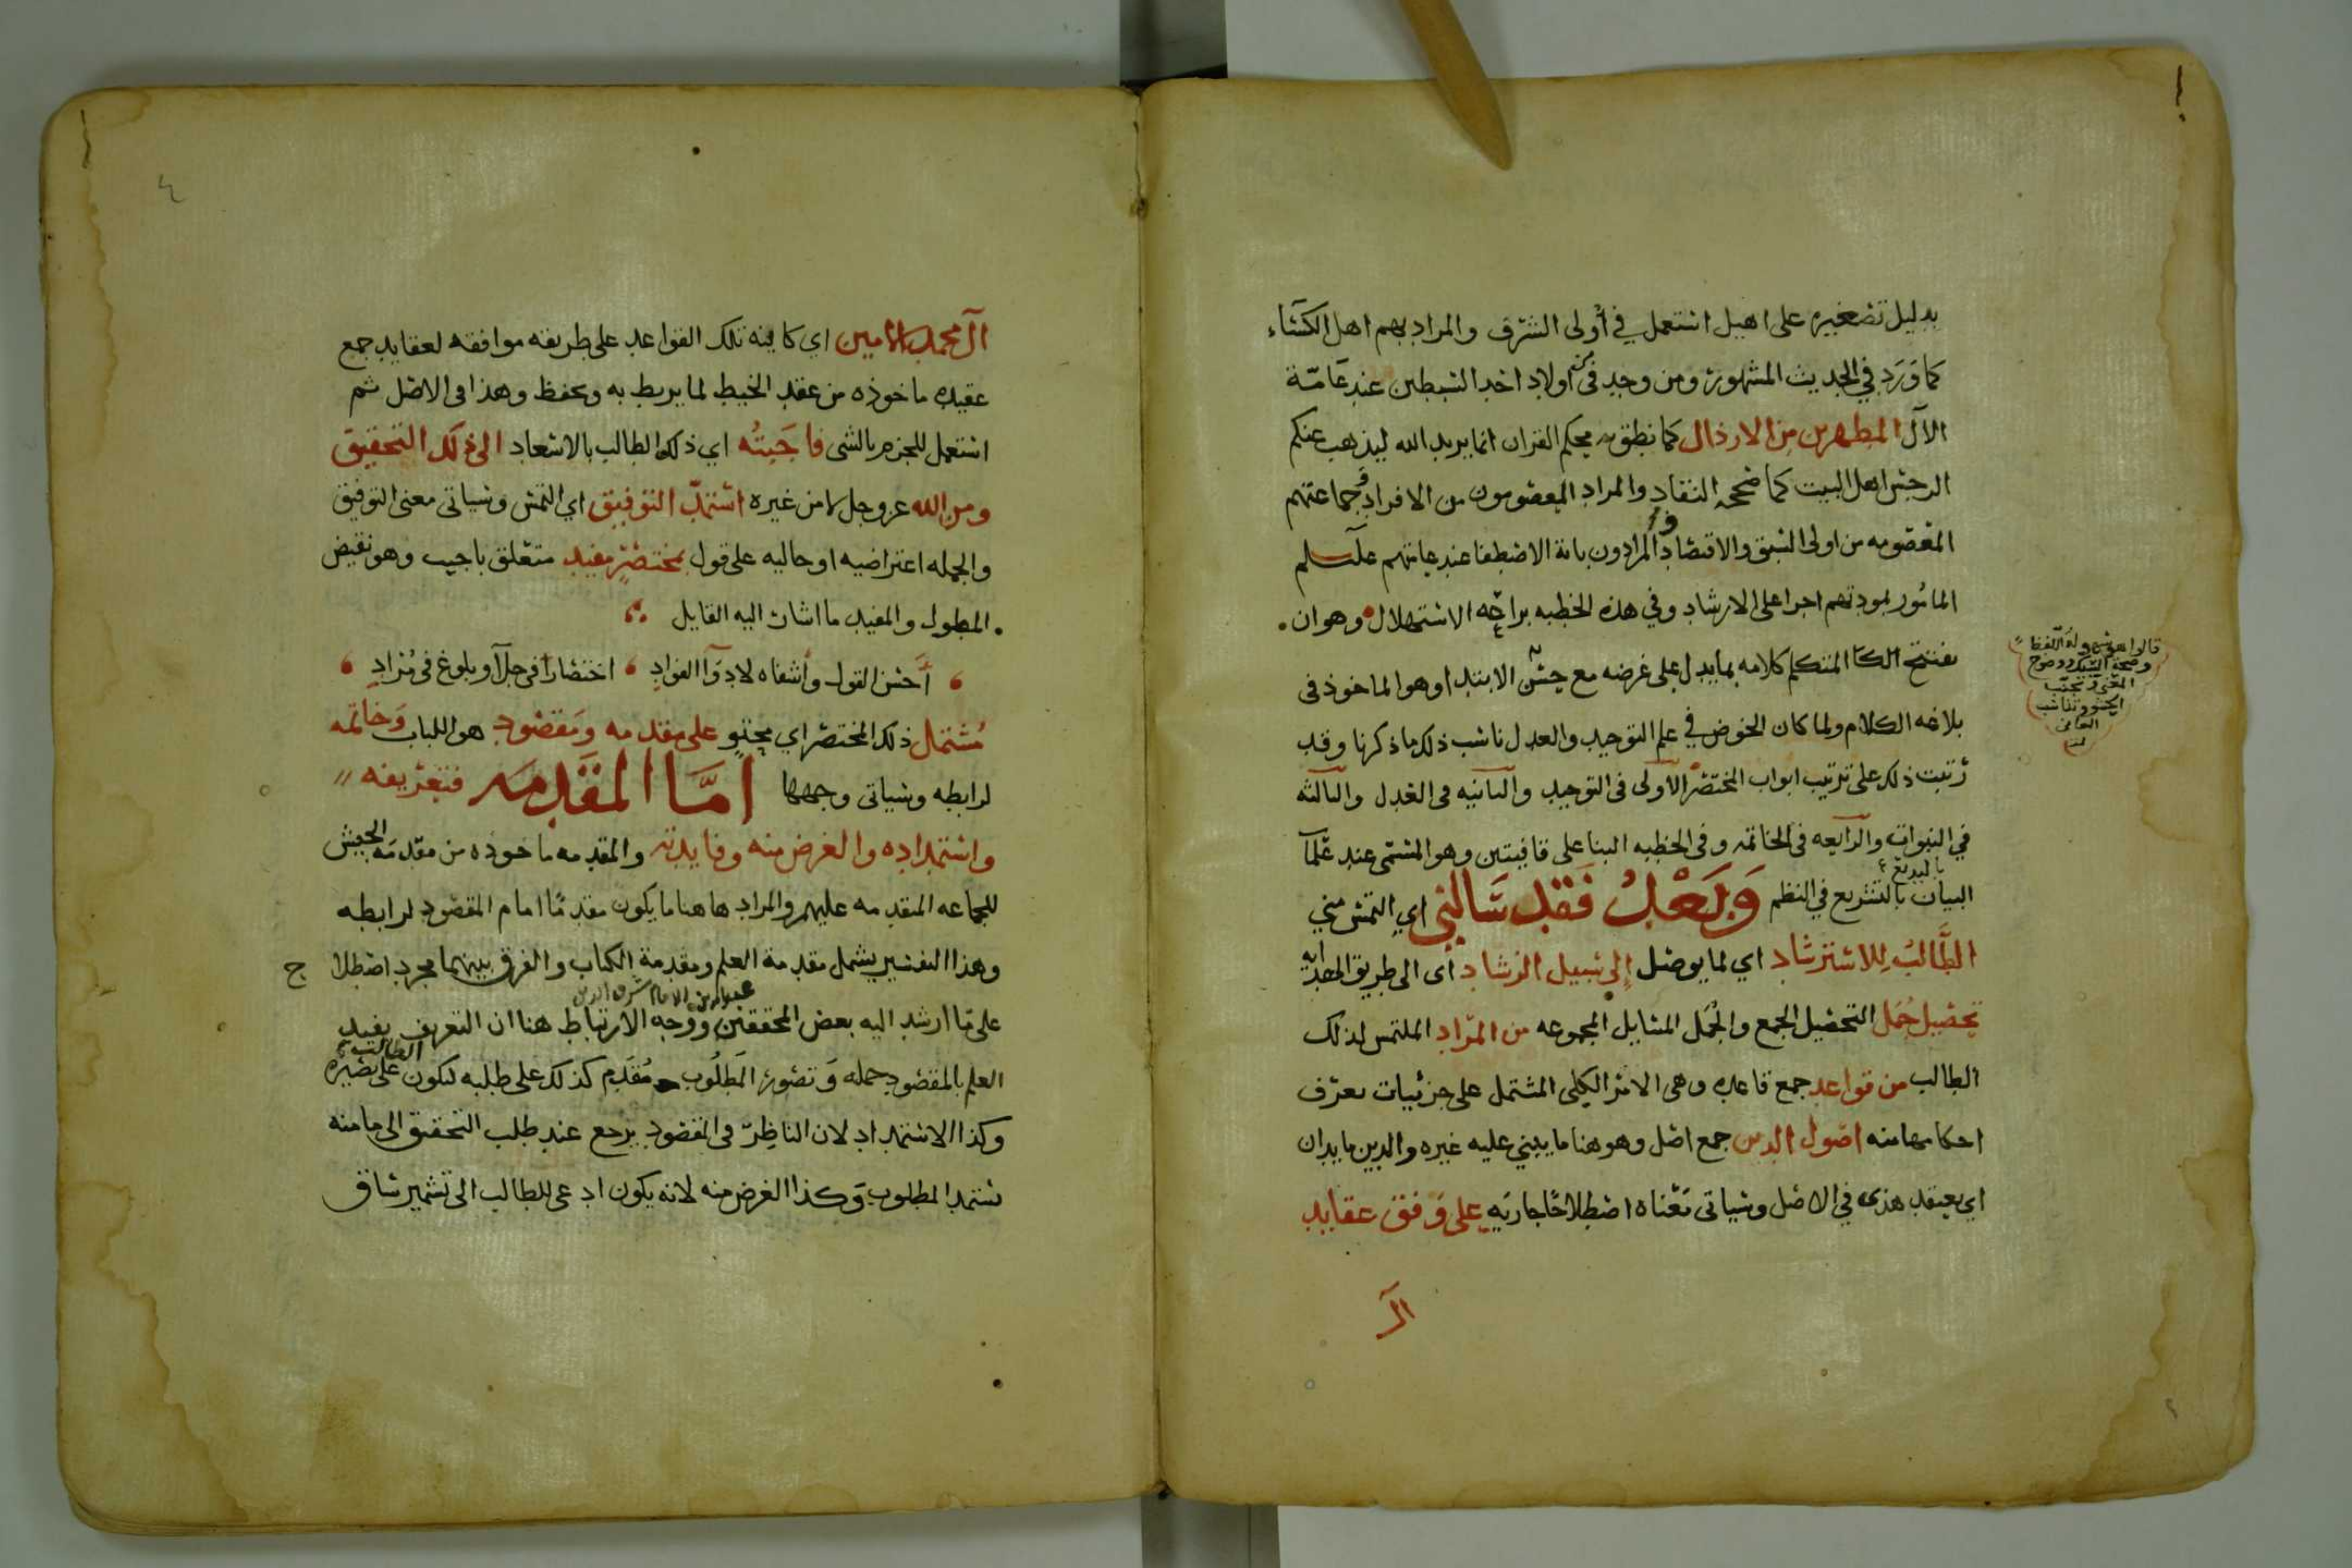 بدليل تصغيره على اهيل استعمل في أولى الشرف والمراد بهم اهل الكساء
كما وَرَد في الحديث المشهور ومن وجد في أولاد احد السبطين عند عامّة
الآل المطهرين من الارذال كما نطق به محكم القران انما يريد الله ليذهب عنكم
الرجس اهل البيت كما صححه النقاد والمراد المعصومون من الافراد وجماعتهم
المعصومه من اولى السبق والاقتصاد والمرادون باية الاصطفا عند عامتهم
المامور بمودتهم اجرا على الارشاد وفي هذه الخطبه براعة الاستهلال وهو ان
يفتتح المتكلم كلامه بما يدل على غرضه مع حسن الابتدا وهو الماخوذ في
بلاغه الكلام ولما كان الخوض في علم التوحيد والعدل ناسب ذلك ما ذكرنا وقد
رتبت ذلك على ترتيب ابواب المختصر الاولى في التوحيد والثانيه في العدل والثالثه
في النبوات والرابعه في الخاتمه وفي الخطبه البنا على قافيتين وهو المسمى عند علما
البيان بالتشريع في النظم وَبَعْدُ فَقَد سَالني اي التمس مني
بالبديع
الطَّالبُ لِلاسترشاد اي لما يوصل إلى سبيل الرشاد اى الى طريق الهداية
تحصيل جُمَل التحصيل الجمع والجُمَل المسايل المجموعه من المرَاد الملتمس لذلك
الطالب من قواعد جمع قاعده وهى الامر الكلى المشتمل على جزئيات تعرف
احكامها منه اصول الدين جمع اصل وهو هنا ما يبني عليه غيره والدين ما يدان
اي يعتقد هذى في الاصل وسياتى مَعْناه اصطلاحًا جاريَه على وَفق عقايد
الَ
آل محمد الامين اي كاينه تلك القواعد على طريقه موافقه لعقايد جمع
عقيده ماخوذه من عقد الخيط لما يربط به ويحفظ وهذا فى الاصل ثم
استعمل للجزم بالشى فاجَبتُه اي ذلك الطالب بالاسعاد الى ذلك التحقيق
ومن الله عز وجل لا من غيره استمد التوفيق اي التمس وسياتى معنى التوفيق
والجمله اعتراضيه او حاليه على قول بمختصرٍ مفيد متعلق باجيب وهو نقيض
المطول والمفيد ما اشار اليه القايل
أَحسَن القول وأشفاه لادوَآ الفوادِ اختصارٌ في جلآ وبلوغ فى مُرَادِ
مُشتمل ذلك المختصر اي محتوٍ على مقدمه ومَقصُود هو اللباب وَخاتمه
لرابطه وسياتى وجهها أَمَّا المُقَدِمه فتعريفه
واستمداده والغرض منه وفايدته والمقدمه ماخوذه من مقدمَه الجيش
للجماعه المتقدمه عليهم والمراد هاهنا ما يكون مقدمًا امام المقصود لرابطه
وهذا التفسير يشمل مقدمة العلم ومقدمة الكتاب والفرق بينهما مجرد اصطلا ح
على مَا ارشد اليه بعض المحققين وَوَجه الارتباط هنا ان التعريف يفيد
الامام شرف الدين
العلم بالمقصود جمله وَتصَور المَطلُوب مُقَدم كذلك على طلبه لتكون على بصيره
الطالب
وكذا الاستمداد لان الناظِر فى المقصود يرجع عند طلب التحقيق الى ما منه
ستمد المطلوب وَكذا الغرض منه لانه يكون ادعى للطالب الى تشمير ساق
٤